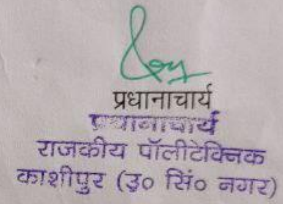 प्रधानाचार्य
प्रधानाचार्य
राजकीय पॉलीटेक्निक
काशीपुर (उ० सिं० नगर)